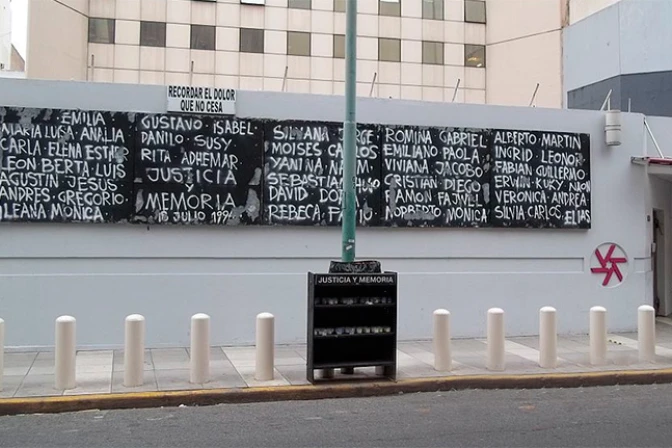 RECORDAR EL DOLOR
QUE NO CESA
EMILIA
MARIA LUISA ANALIA
CARLA ELENA ESTHER
LEON BERTA LUIS
AGUSTIN JESUS
ANDRES GREGORIO
ILEANA MONICA
GUSTAVO ISABEL
DANILO SUSY
RITA ADHEMAR
JUSTICIA
Y
MEMORIA
18 JULIO 1994
SILVANA JORGE
MOISES CARLOS
YANINA NAUM
SEBASTIAN
DAVID DORA
REBECA
ROMINA GABRIEL
EMILIANO PAOLA
VIVIANA JACOBO
CRISTIAN DIEGO
RAMON FAJWEL
NORBERTO MONICA
ALBERTO MARTIN
INGRID LEONOR
FABIAN GUILLERMO
ERWIN KUKY
VERONICA ANDREA
SILVIA CARLOS ELIAS
JUSTICIA Y MEMORIA